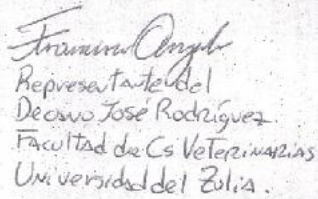 Representante del
Decano José Rodríguez.
Facultad de Cs VeTerinarias
Universidad del Zulia.